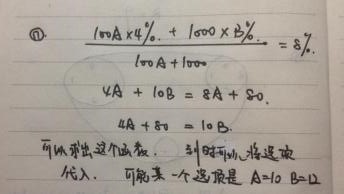 ⑰.
100A×4%. + 1000×B%.
/ 100A+1000 = 8%.
4A + 10B = 8A + 80.
4A + 80 = 10B.
可以求出这个函数. 到时可以将选项
代入. 可能某一个选项是 A=10 B=12